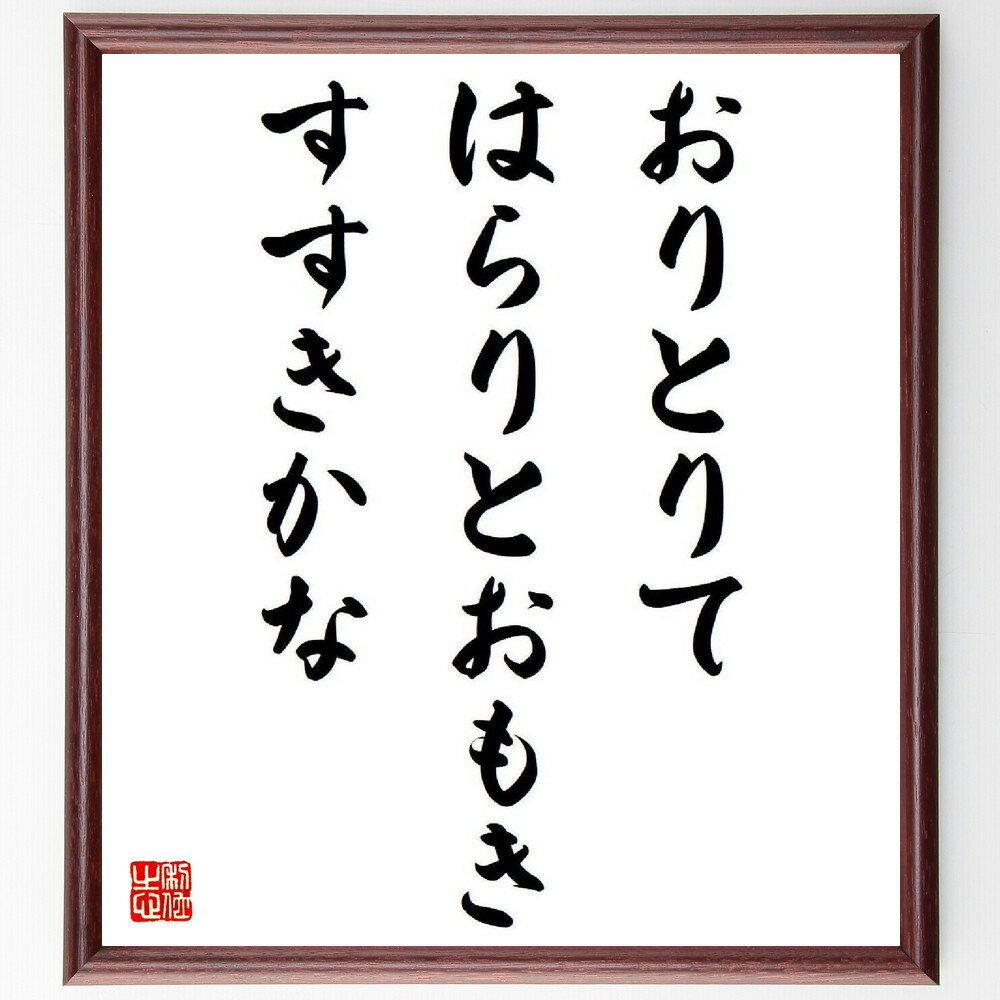 おりとりて
はらりとおもき
すすきかな